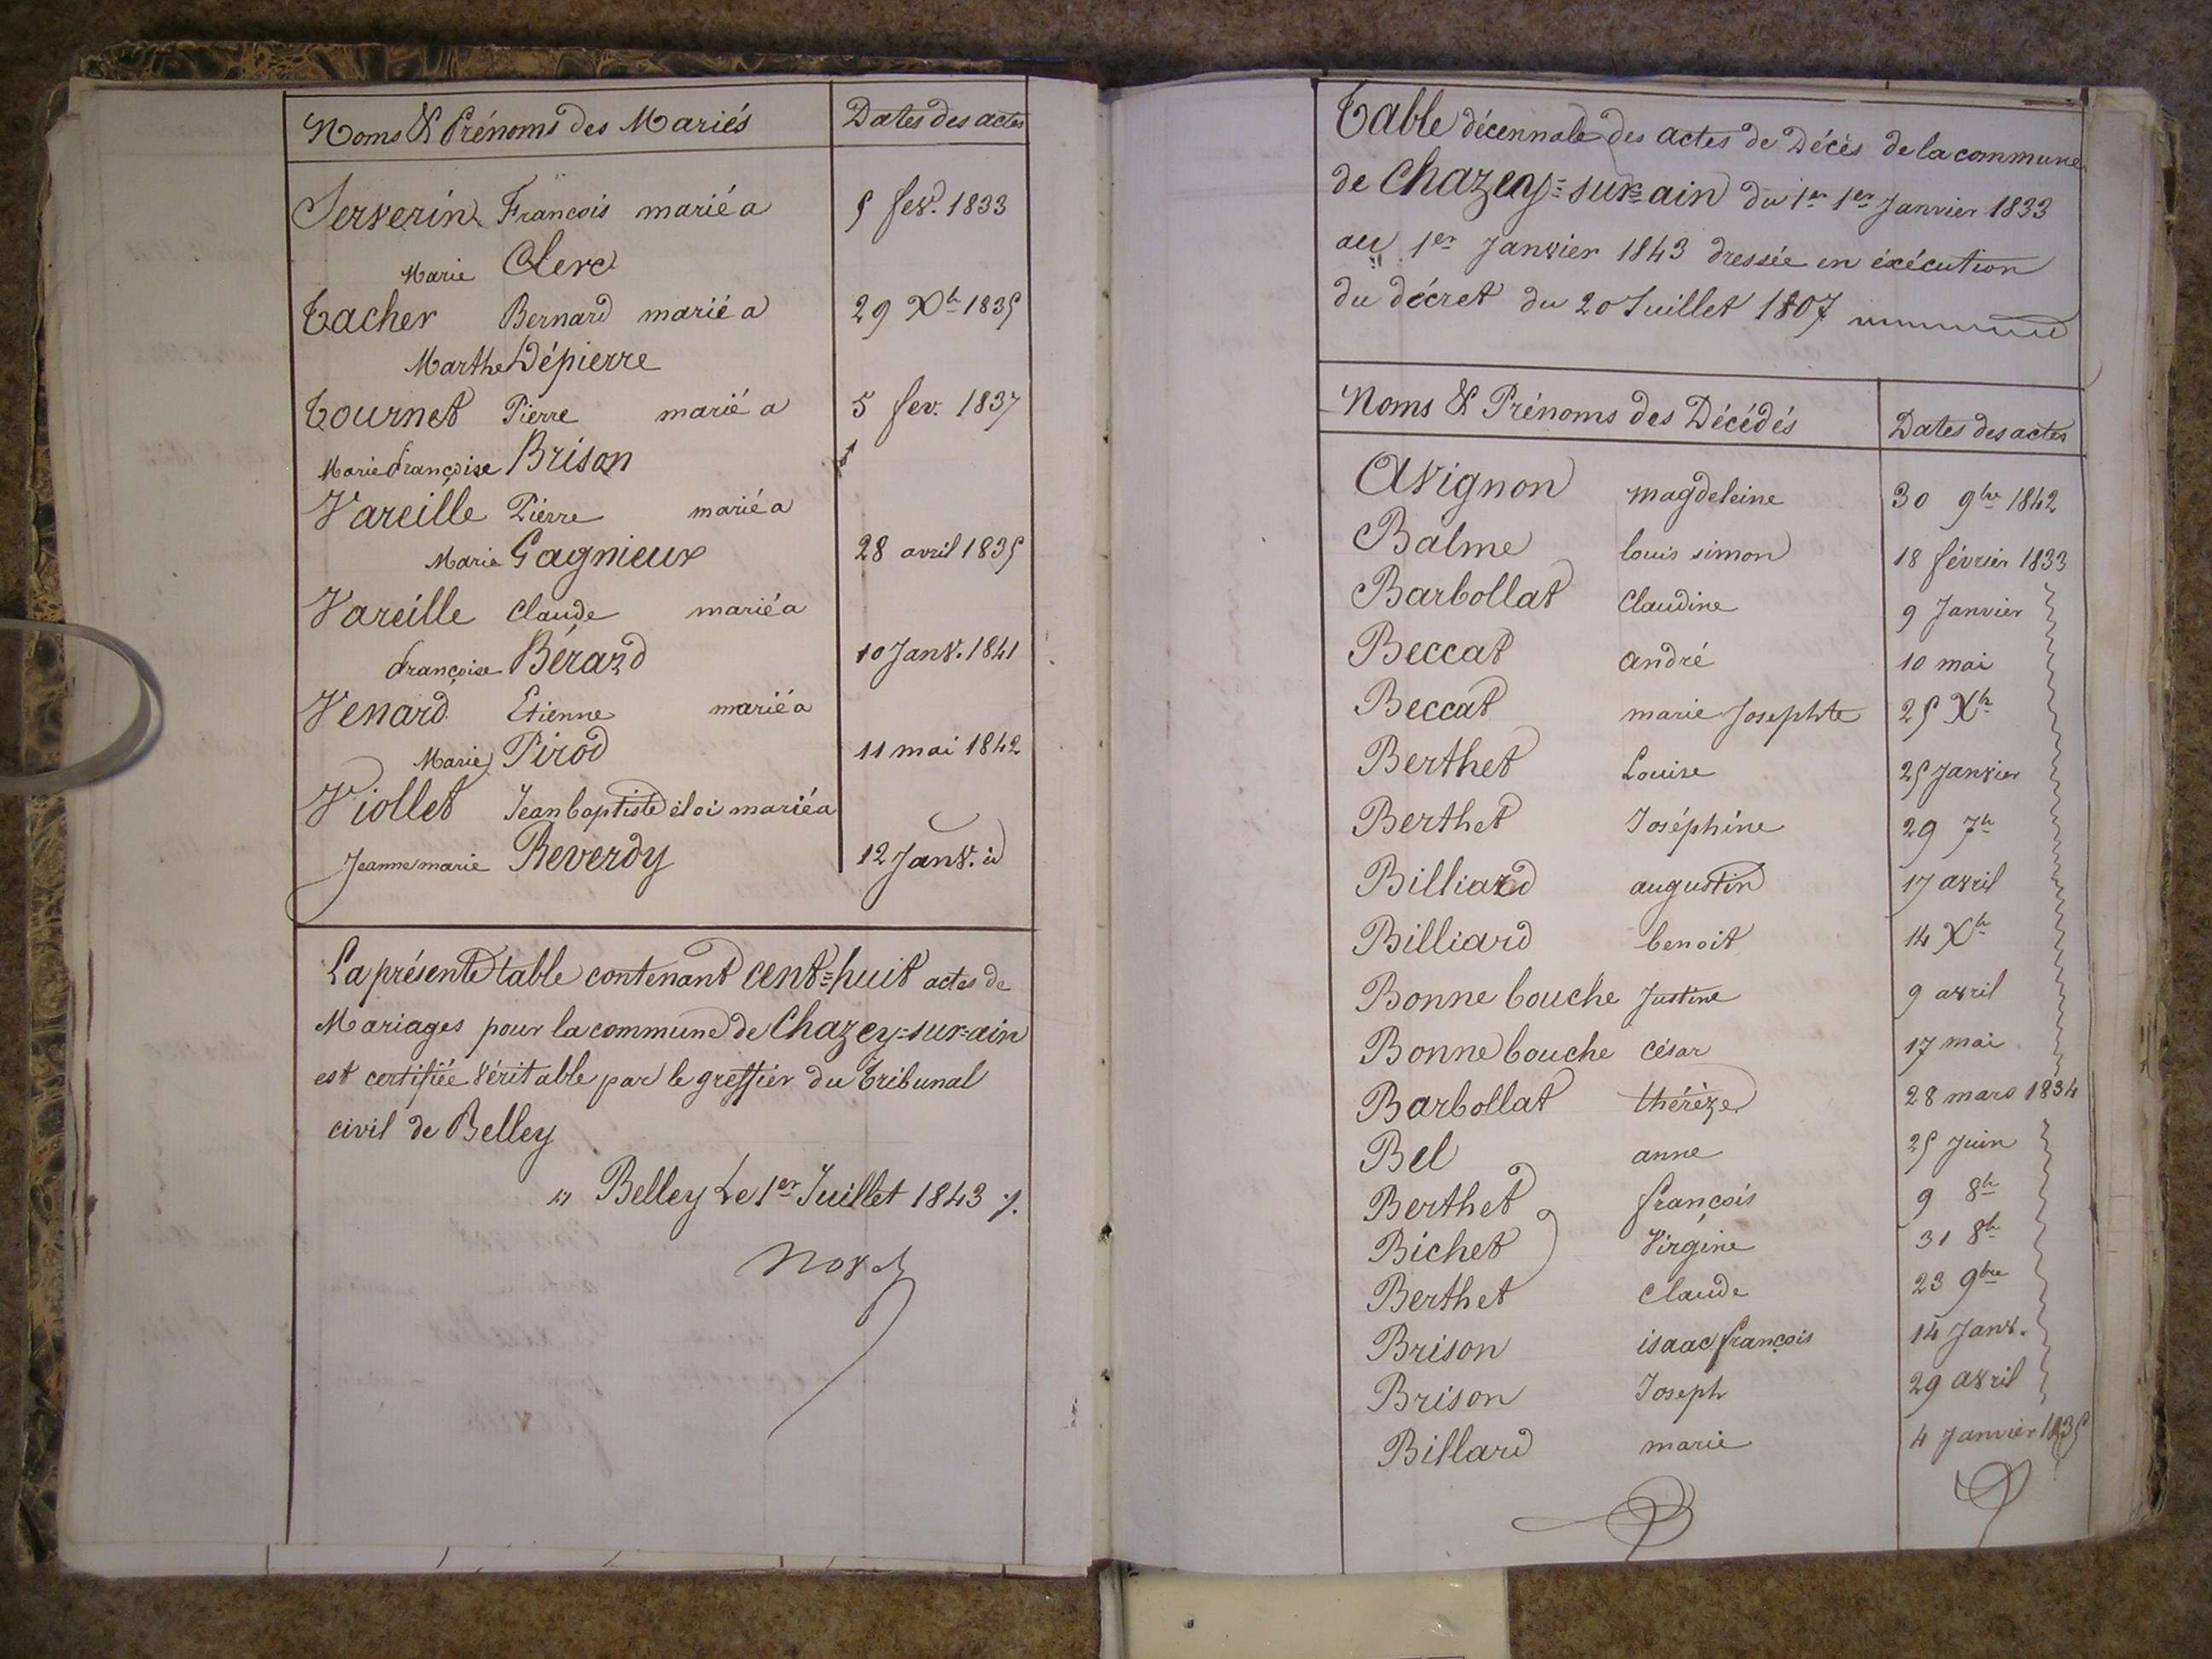 Noms & Prénoms des Mariés Dates des actes
Serverin Francois marié a 5 fev. 1833
Marie Clerc
Tacher Bernard marié a 29 Xb 1835
Marthe Dépierre
Tournet Pierre marié a 5 fev. 1837
Marie françoise Brison
Vareille Pierre marié a
Marie Gagnieux 28 avril 1835
Vareille Claude marié a
françoise Bérard 10 Janv. 1841
Venard Etienne marié a
Marie Pirod 11 mai 1842
Viollet Jean baptiste éloi marié a
Jeanne marie Reverdy 12 Janv. id
La présente table contenant cent=huit actes de
Mariages pour la commune de Chazey=sur=ain
est certifiée véritable par le greffier du Tribunal
civil de Belley
" Belley Le 1er Juillet 1843 /.
Table décennale des actes de Décés de la commune
de Chazey=sur=ain du 1er 1er Janvier 1833
au 1er Janvier 1843 dressée en éxécution
du décret du 20 Juillet 1807
Noms & Prénoms des Décédés Dates des actes
Avignon magdeleine 30 9bre 1842
Balme louis simon 18 février 1833
Barbollat Claudine 9 Janvier
Beccat andré 10 mai
Beccat marie Josephte 25 Xb
Berthet Louise 25 Janvier
Berthet Joséphine 29 7b
Billiard augustin 17 avril
Billiard benoit 14 Xb
Bonne bouche Justine 9 avril
Bonne bouche César 17 mai
Barbollat thérèze 28 mars 1834
Bel anne 25 Juin
Berthet françois 9 8b
Bichet Virgine 31 8b
Berthet Claude 23 9bre
Brison isaac françois 14 Janv.
Brison Joseph 29 avril
Billard marie 4 Janvier 1835